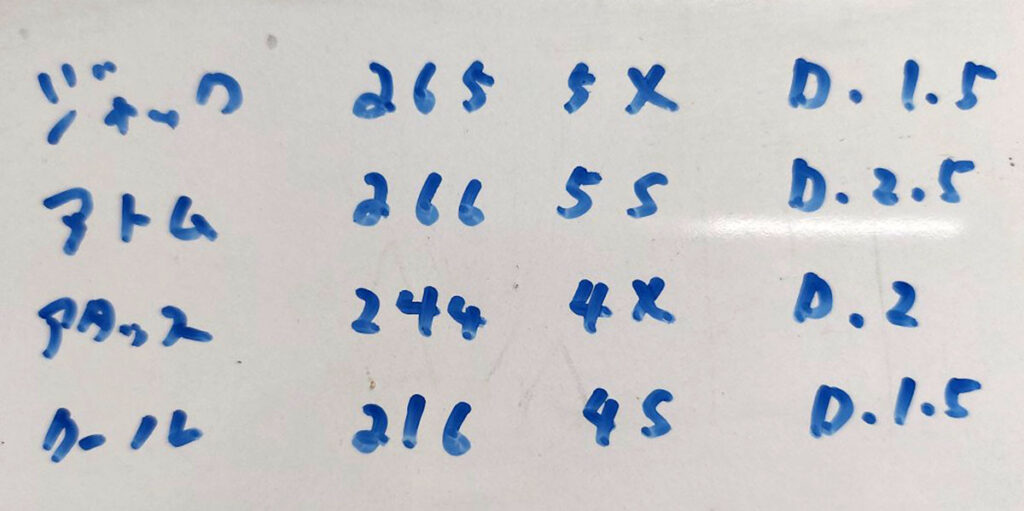 ジャック 265 5X D.1.5
アトム 266 5S D.2.5
アタックス 244 4X D.2
クール 216 4S D.1.5